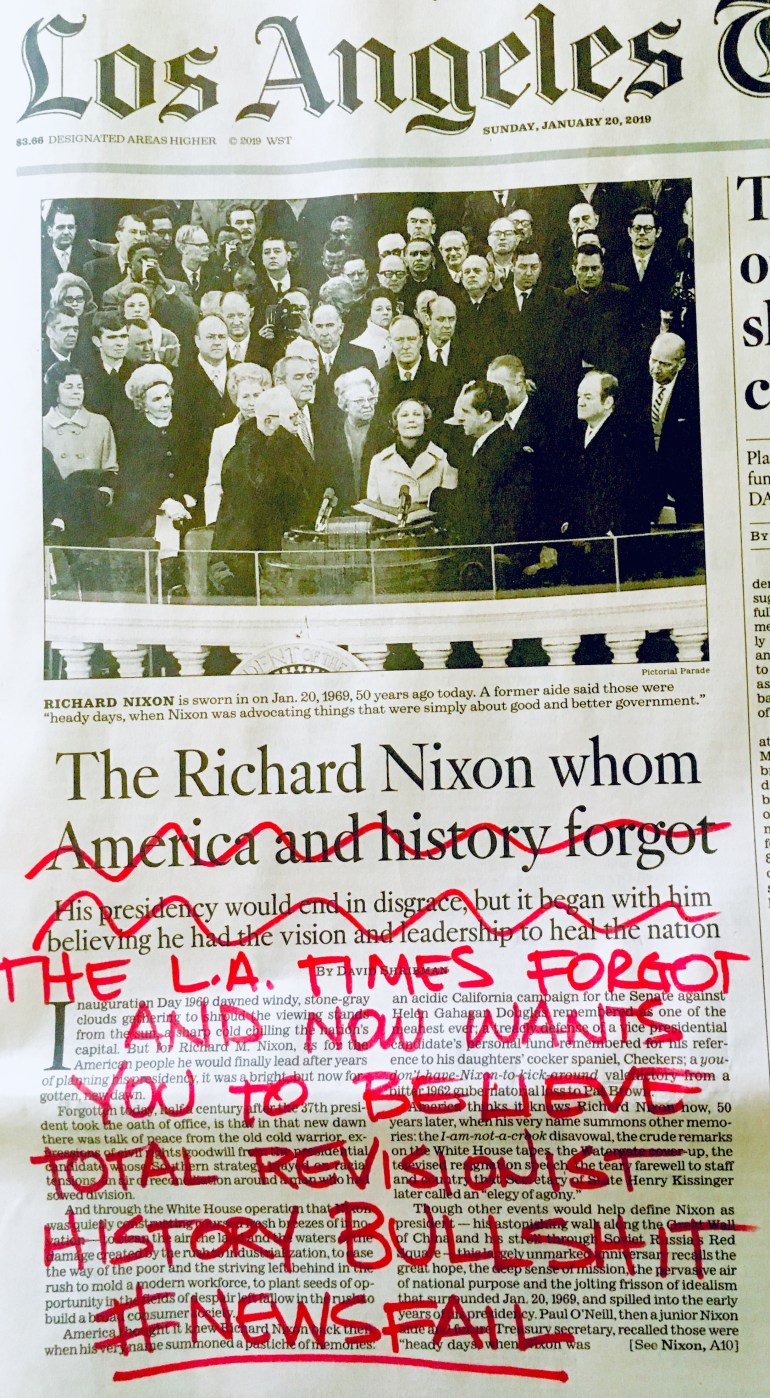 Los Angeles T
$3.66 DESIGNATED AREAS HIGHER © 2019 WST
SUNDAY, JANUARY 20, 2019
Pictorial Parade
RICHARD NIXON is sworn in on Jan. 20, 1969, 50 years ago today. A former aide said those were
“heady days, when Nixon was advocating things that were simply about good and better government.”
The Richard Nixon whom
America and history forgot
His presidency would end in disgrace, but it began with him
believing he had the vision and leadership to heal the nation
BY DAVID SHRIBMAN
THE L.A. TIMES FORGOT
AND NOW WANTS
YOU TO BESLIEVE
TOTAL REVISIONIST
HISTORY BULLSHIT
#NEWSFAIL
Inauguration Day 1969 dawned windy, stone-gray
clouds gathering to the viewing stands
from the sun, a sharp cold chilling the nation’s
capital. But for Richard M. Nixon, as for the
American people he would finally lead after years
of planning presidency, it was a bright but now for-
gotten, new dawn.
Forgotten today, half century after the 37th presi-
dent took the oath of office, is that in that new dawn
there was talk of peace from the old cold warrior, ex-
pressions of civil rights goodwill from the presidential
candidate whose Southern strategy played on racial
tensions, an air of reconciliation around a man who had
sowed division.
And through the White House operation that Nixon
was quietly fresh breezes of inno-
the air the land and the waters of the
damage created by the rush to industrialization, to ease
the way of the poor and the striving left behind in the
rush to mold a modern workforce, to plant seeds of op-
portunity in the fields of despair left fallow in the rush to
build a broad consumer society.
America thought it knew Richard Nixon back then
when his very name summoned a pastiche of memories:
an acidic California campaign for the Senate against
Helen Gahagan Douglas remembered as one of the
meanest ever; a treacly defense of vice presidential
candidate’s personal fund remembered for his refer-
ence to his daughters’ cocker spaniel, Checkers; a you-
don’t-have-Nixon-to-kick-around valedictory from a
bitter 1962 gubernatorial loss to Pat Brown.
America thinks it knows Richard Nixon now, 50
years later, when his very name summons other memo-
ries: the I-am-not-a-crook disavowal, the crude remarks
on the White House tapes, the Watergate cover-up, the
televised resignation speech, the teary farewell to staff
and country that Secretary of State Henry Kissinger
later called an “elegy of agony.”
Though other events would help define Nixon as
president — his astonishing walk along the Great Wall
of China and his stroll through Soviet Russia’s Red
Square — this largely unmarked anniversary recalls the
great hope, the deep sense of mission, the pervasive air
of national purpose and the jolting frisson of idealism
that surrounded Jan. 20, 1969, and spilled into the early
years of his presidency. Paul O’Neill, then a junior Nixon
aide and future Treasury secretary, recalled those were
“heady days, when Nixon was [See Nixon, A10]